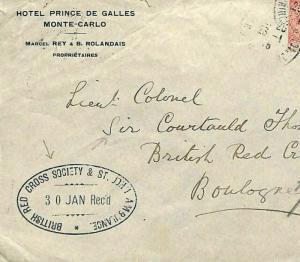 HOTEL PRINCE DE GALLES
MONTE-CARLO
MARCEL REY & B. ROLANDAIS
PROPRIÉTAIRES
Lieut Colonel
Sir Courtauld Tho
British Red Cr
Boulogne
BRITISH RED CROSS SOCIETY & ST. JOHN AMBULANCE.
30 JAN Rec'd